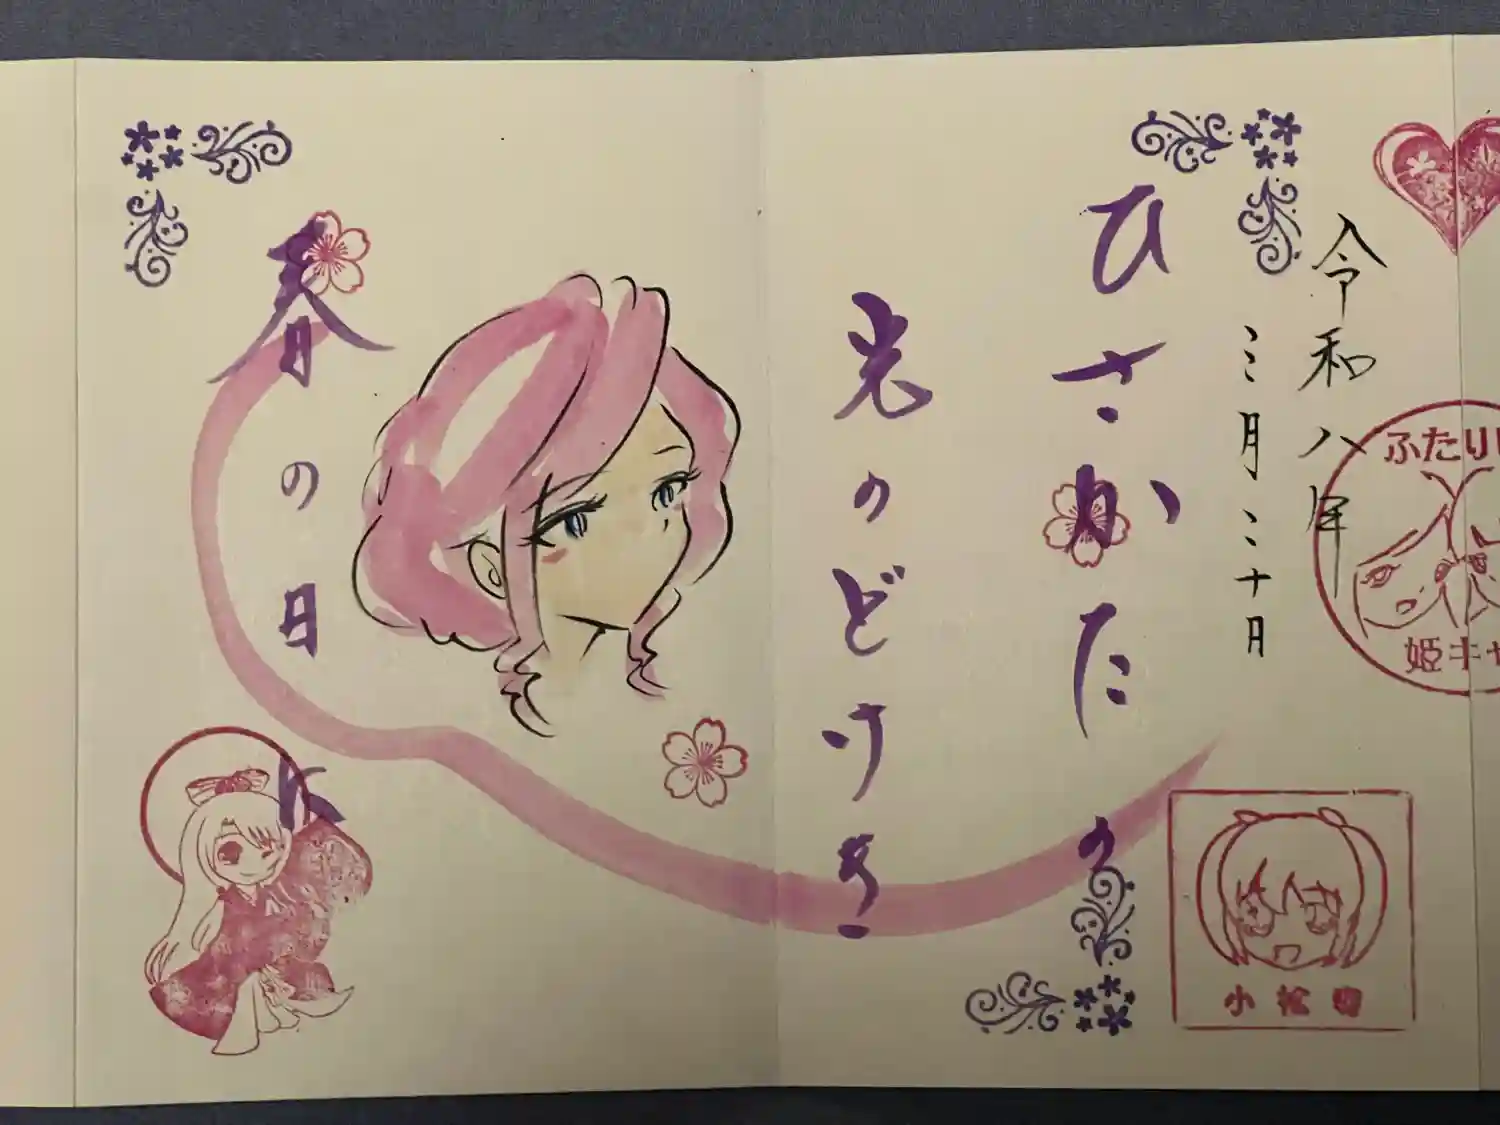 ふたり
姫キャ
令和八年
三月二十日
ひさかたの
光のどけき
春の日に